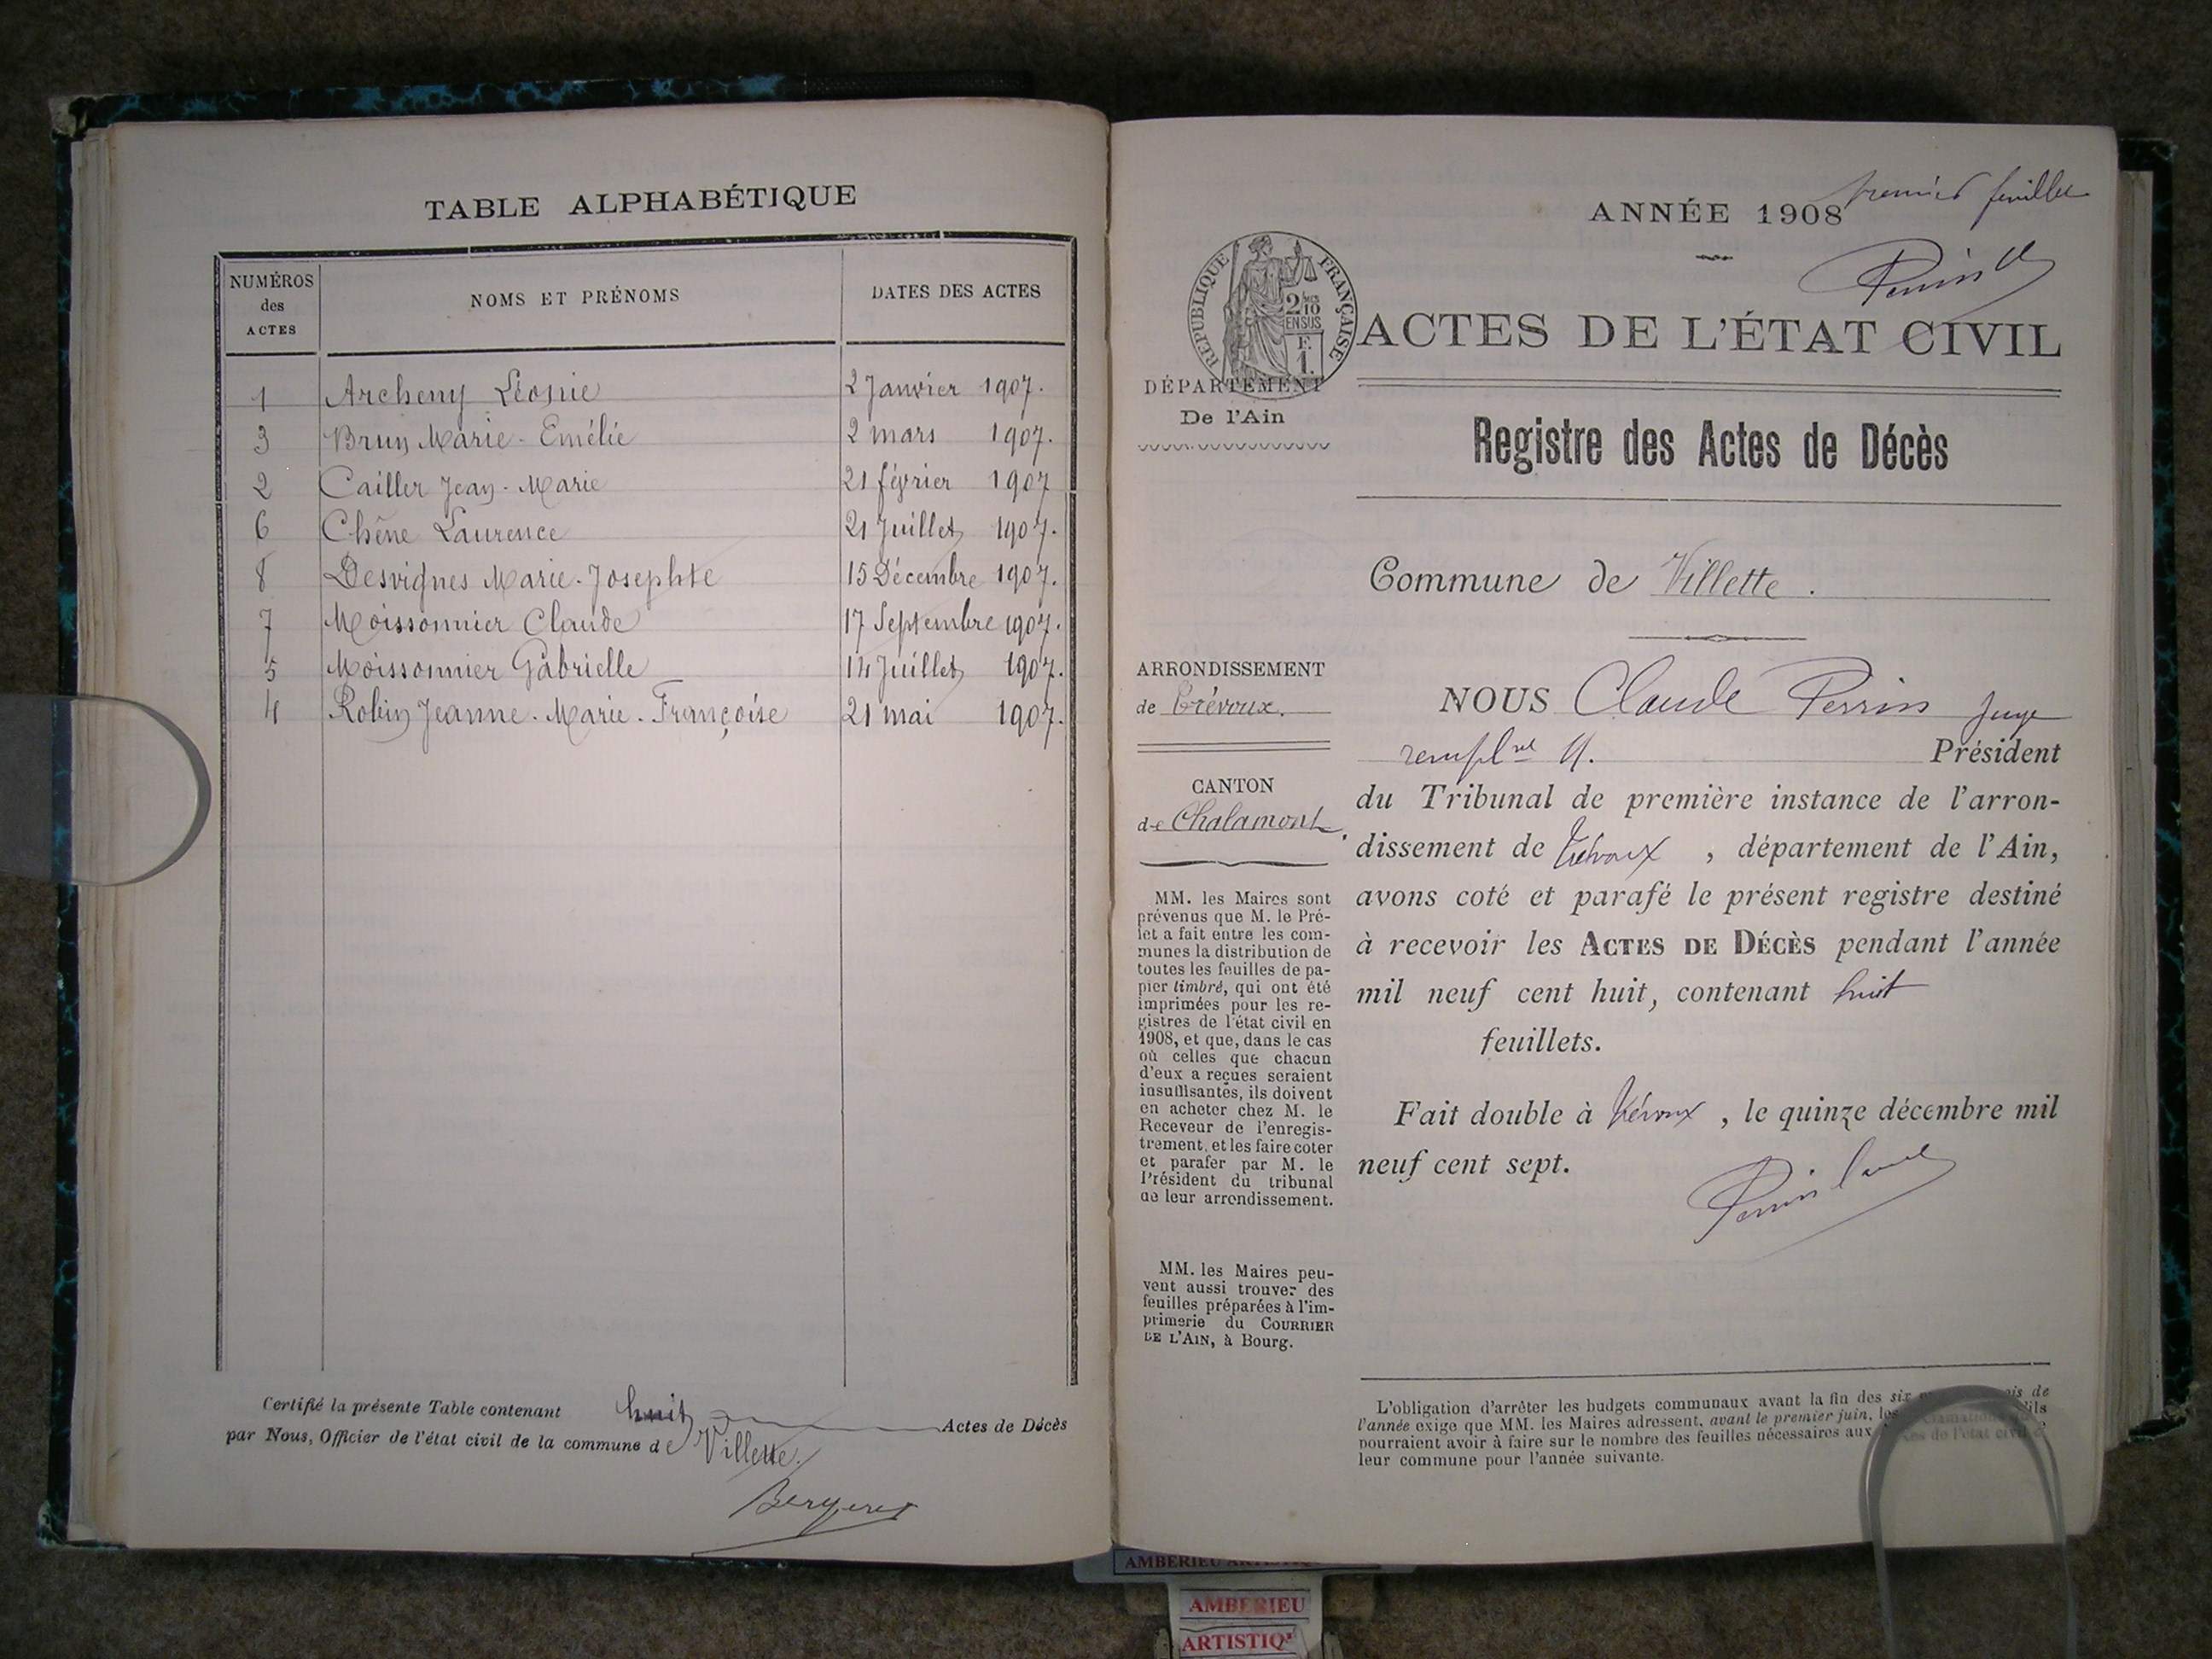 TABLE ALPHABÉTIQUE
NUMÉROS
des
ACTES
NOMS ET PRÉNOMS
DATES DES ACTES
1 Archeny Léonie 2 Janvier 1907.
3 Brun Marie-Emélie 2 mars 1907.
2 Cailler Jean-Marie 21 février 1907
6 Chêne Laurence 21 Juillet 1907.
8 Desvignes Marie-Josephte 15 Décembre 1907.
7 Moissonnier Claude 17 Septembre 1907.
5 Moissonnier Gabrielle 14 Juillet 1907.
4 Robin Jeanne-Marie-Françoise 21 mai 1907.
Certifié la présente Table contenant huit Actes de Décès
par Nous, Officier de l'état civil de la commune de Villette.
Bergeret
premier feuillet
ANNÉE 1908
Perrin
RÉPUBLIQUE FRANÇAISE
2/10
EN SUS
F.
1.
ACTES DE L'ÉTAT CIVIL
DÉPARTEMENT
De l'Ain
Registre des Actes de Décès
Commune de Villette.
ARRONDISSEMENT
de Trévoux.
CANTON
de Chalamont.
MM. les Maires sont
prévenus que M. le Pré-
fet a fait entre les com-
munes la distribution de
toutes les feuilles de pa-
pier timbré, qui ont été
imprimées pour les re-
gistres de l'état civil en
1908, et que, dans le cas
où celles que chacun
d'eux a reçues seraient
insuffisantes, ils doivent
en acheter chez M. le
Receveur de l'enregis-
trement, et les faire coter
et parafer par M. le
Président du tribunal
de leur arrondissement.
MM. les Maires peu-
vent aussi trouver des
feuilles préparées à l'im-
primerie du COURRIER
DE L'AIN, à Bourg.
NOUS Claude Perrin Juge
Président
du Tribunal de première instance de l'arron-
dissement de Trévoux, département de l'Ain,
avons coté et parafé le présent registre destiné
à recevoir les ACTES DE DÉCÈS pendant l'année
mil neuf cent huit, contenant huit
feuillets.
Fait double à Trévoux, le quinze décembre mil
neuf cent sept.
Perrin Claude
L'obligation d'arrêter les budgets communaux avant la fin des six
l'année exige que MM. les Maires adressent, avant le premier juin, les
pourraient avoir à faire sur le nombre des feuilles nécessaires aux
leur commune pour l'année suivante.
AMBERIEU
AMBERIEU
ARTISTIQ